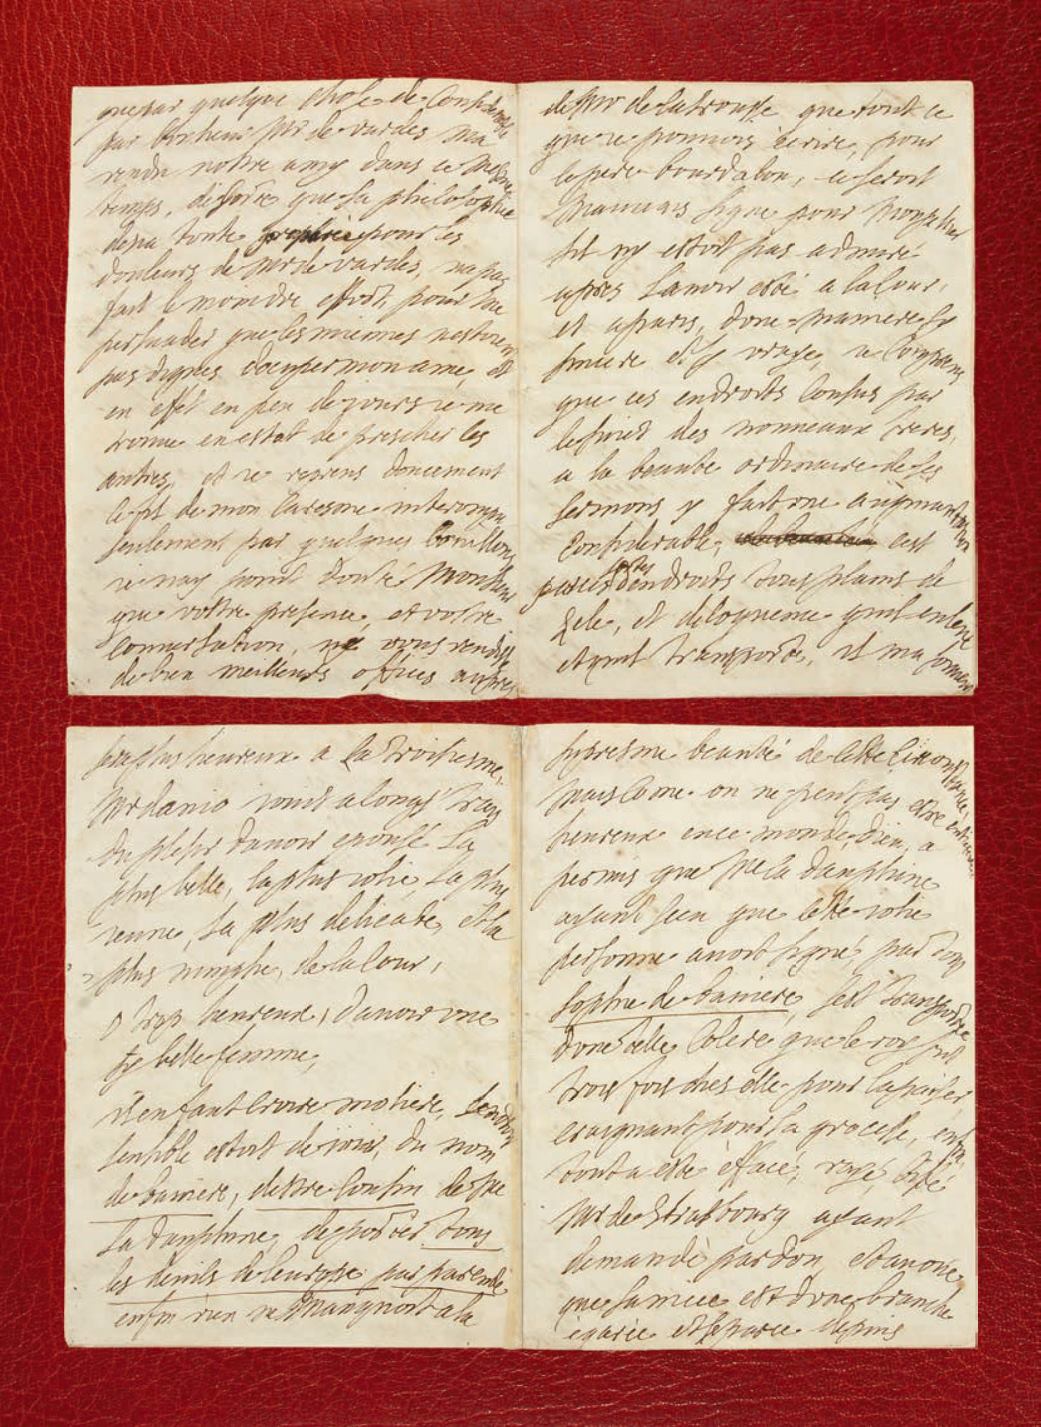 que par quelque chose de considerable
par bonheur Mr de vardes ma
rendu nostre amy dans ce mesme
temps, de sorte que sa philosophie
desia toute pour les
douleurs de Mr de vardes, na pas
fait le moindre effort pour me
persuader que les miennes nestoient
pas dignes doccuper mon ame, et
en effet en peu de jours ie me
trouue en estat de prescher les
autres, et ie reprens doucement
le fil de mon caresme interompu
seulement par quelques bouillons
ie nay point douté Monsieur
que vostre presence, et vostre
conuersation, ne vous rendist
de bien meilleurs offices aupres
de Mr de la trousse que tout ce
que ie pourrois ecrire, pour
le pere bourdaloue, ce seroit
mauuais signe pour Montpelier
sil ny estoit pas admiré
apres lauoir esté a la cour,
et a paris, dune maniere sy
sincere et sy vraye, ie comprens
que ces endroits cousus par
le suiet des nouueaux freres,
a la beauté ordinaire de ses
sermons y fait une augmentation
considerable, cest
par ces endroits tous plains de
zele, et deloquence quil enleue
et quil transporte, il ma souuent
sera plus heureux a la troisiesme,
Mr dangeau iouit a longs traits
du plesir dauoir epousé la
plus belle, la plus iolie, la plus
ieune, la plus delicate, et la
plus nimphe, de la cour,
o trop heureux, dauoir une
sy belle femme,
il en faut croire moliere, lendroit
sensible estoit de iouir, du nom
de bauiere, destre cousin de Me
la dauphine, de porter tous
les deuils de leurope par parenté
enfin rien ne manquoit a la
supresme beauté de cette circonstance,
mais come on ne peut pas estre entierement
heureux en ce monde, dieu, a
permis que Me la dauphine
ayant sceu que cette iolie
personne auoit signé, par tout
sophie de bauiere, sest transportée
dune telle colere que le roy fut
trois fois ches elle pour lapaiser
craignant pour sa grocesse, enfin
tout a esté effacé, rayé, bifé
Mr de strasbourg ayant
demandé pardon, et auoué
que sa niece est dune branche
egarée et separée depuis